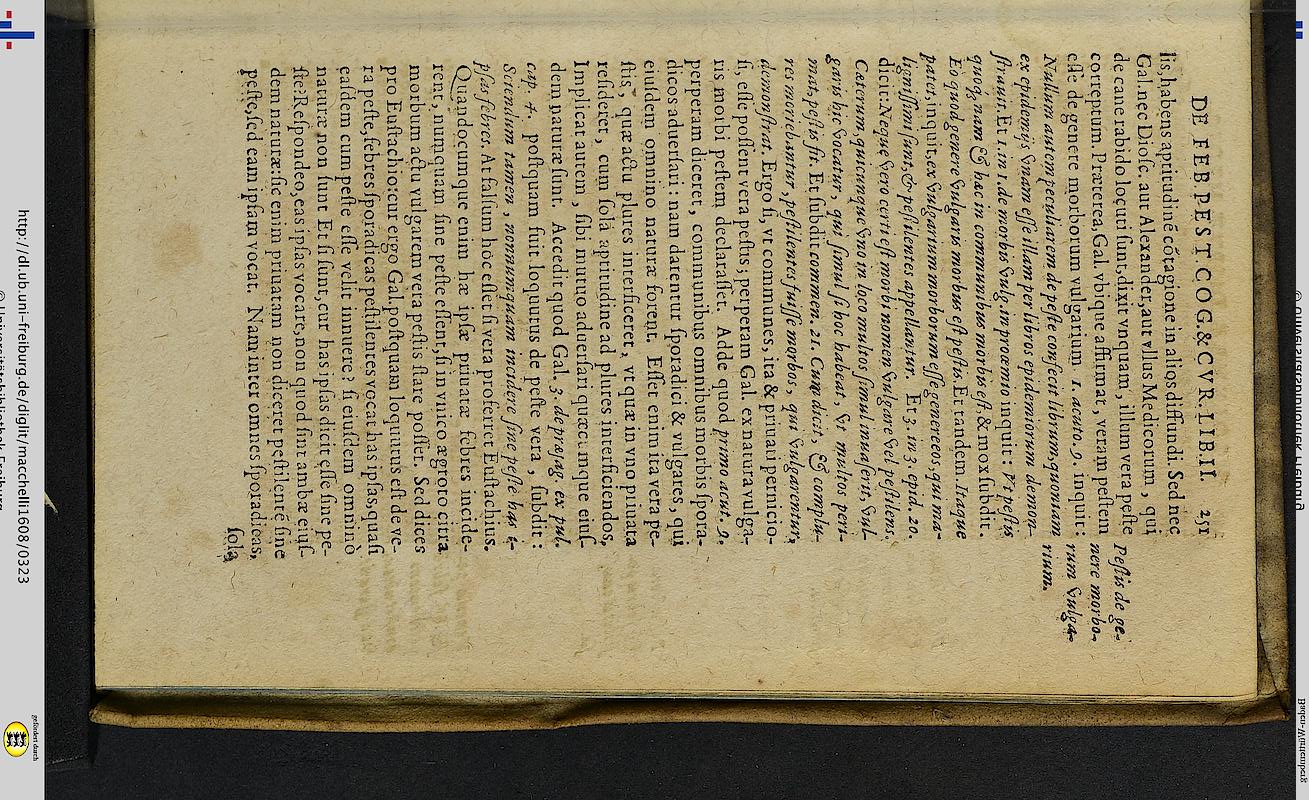 DE FEB. PEST. COG. & CVR. LIB. II. 251
lis, habens aptitudinē cōtagione in alios diffundi. Sed nec
Gal. nec Diosc. aut Alexander, aut vllus Medicorum, qui
de cane rabido locuti sunt, dixit vnquam, illum vera peste
correptum. Præterea, Gal. vbique affirmat, veram pestem
esse de genere morborum vulgarium. 1. acuto. 9. inquit:
Nullum autem peculiarem de peste confecit librum, quoniam
ex epidemijs vnam esse illam per libros epidemiorum demon-
strauit. Et 1. in 1. de morbis vulg. in proœmio inquit: Vt pestis
quoq; nam & hæc in communibus morbis est. & mox subdit.
Eo quod genere vulgaris morbus est pestis. Et tandem. Itaque
patet, inquit, ex vulgarium morborum esse genere eos, qui ma-
lignissimi sunt, & pestilentes appellantur. Et 3. in 3. epid. 20.
dicit. Neque vero certi est morbi nomen vulgare vel pestilens.
Cæterum, quicunque vno in loco multos simul inuaserit, vul-
garis hic vocatur, qui simul si hoc habeat, vt multos peri-
mat, pestis fit. Et subdit commen. 21. Cum dicit, & complu-
res moriebantur, pestilentes fuisse morbos, qui vulgarentur,
demonstrat. Ergo si, vt communes, ita & priuati pernicio-
si, esse possent vera pestis; perperam Gal. ex natura vulga-
ris morbi pestem declarasset. Adde quod primo acut. 9.
perperam diceret, communibus omnibus morbis spora-
dicos aduersari: nam darentur sporadici & vulgares, qui
eiusdem omnino naturæ forent. Esset enim ita vera pe-
stis, quæ actu plures interficeret, vt quæ in vno priuata
resideret, cum sola aptitudine ad plures interficiendos,
Implicat autem, sibi mutuo aduersari quæcumque eius-
dem naturæ sunt. Accedit quod Gal. 3. de præsag. ex pul.
cap. 4. postquam fuit loquutus de peste vera, subdit:
Sciendum tamen, nonnumquam incidere sine peste has i-
psas febres. At falsum hoc esset si vera proferret Eustachius.
Quandocumque enim hæ ipsæ priuatæ febres incide-
rent, nunquam sine peste essent, si in vnico ægroto citra
morbum actu vulgarem vera pestis stare posset. Sed dices
pro Eustachio: cur ergo Gal. postquam loquutus est de ve-
ra peste, febres sporadicas pestilentes vocat has ipsas, quasi
easdem cum peste esse velit innuere? si eiusdem omnino
naturæ non sunt? Et si sunt, cur has ipsas dicit esse sine pe-
ste? Respondeo, eas ipsas vocare, non quod sint ambæ eius-
dem naturæ: sic enim priuatam non diceret pestilentē sine
peste, sed eam ipsam vocat. Nam inter omnes sporadicas,
sola
Pestis de ge-
nere morbo-
rum vulga-
rium.
http://dl.ub.uni-freiburg.de/diglit/macchelli1608/0323
© Universitätsbibliothek Freiburg
gefördert durch